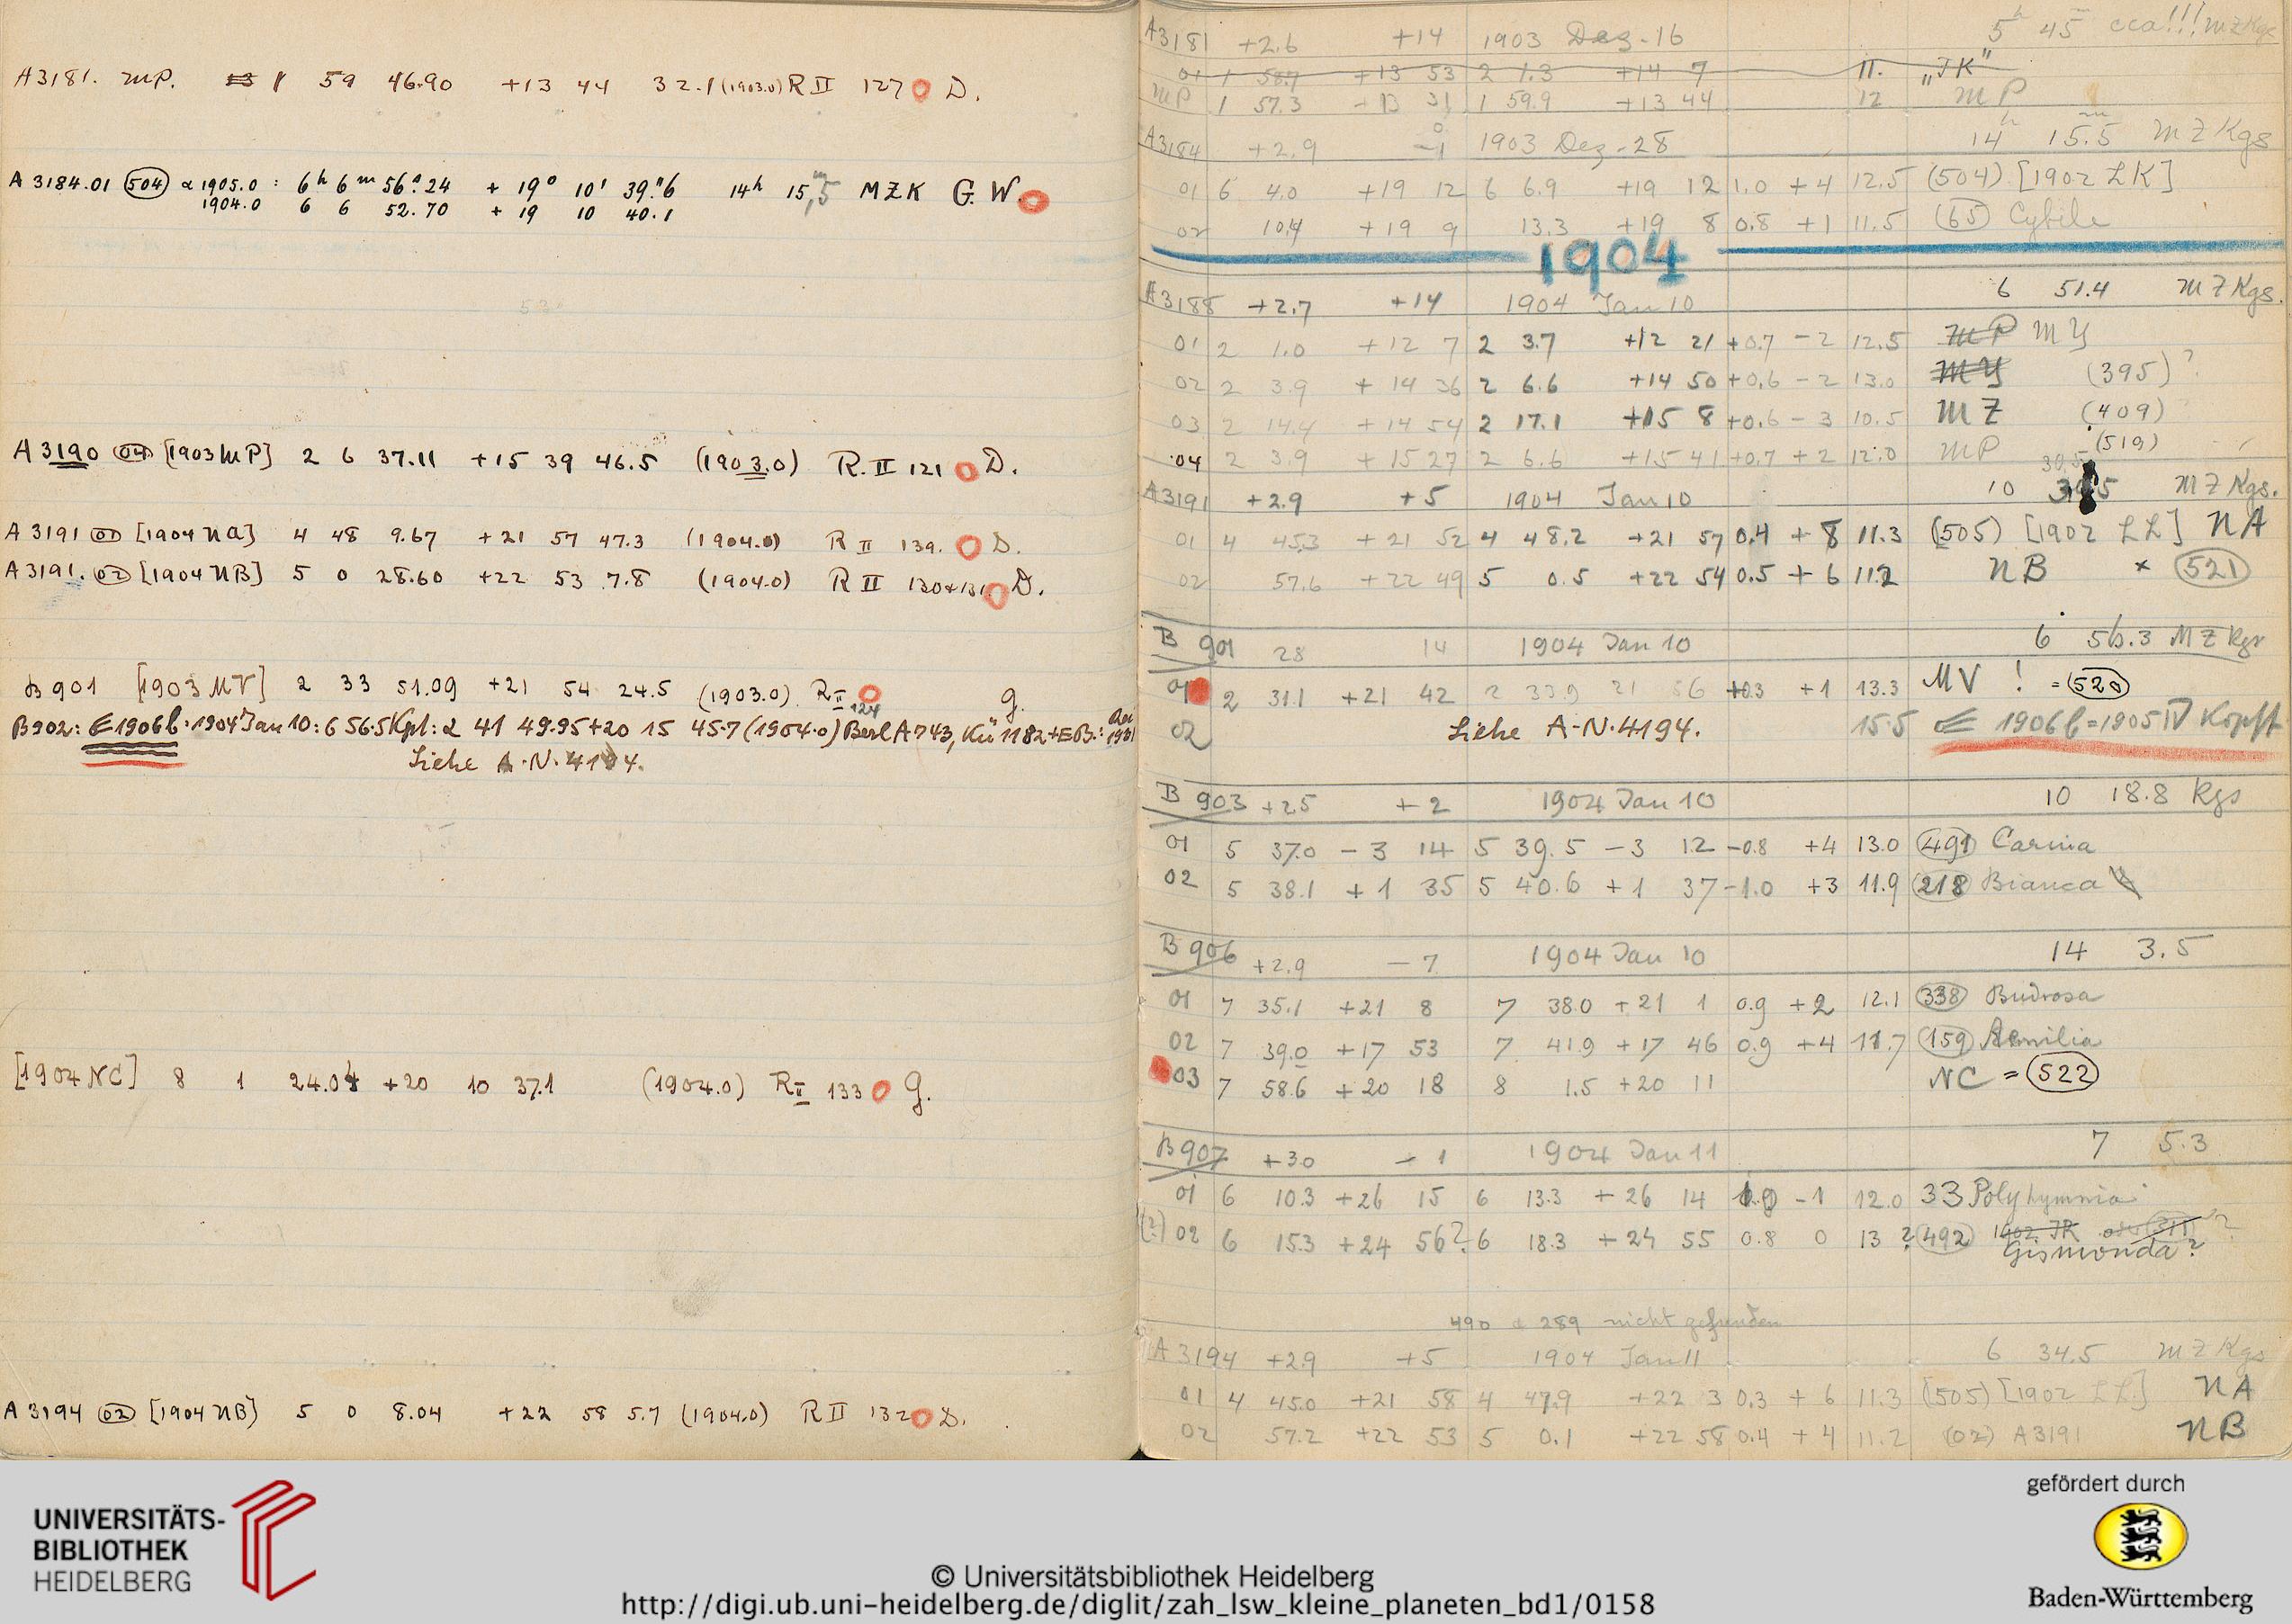 A3181. MP. 1 59 46.90 +13 44 32.1 (1903.0) R II 127 D.
A 3184.01 (504) α 1905.0 : 6h 6m 56s.24 + 19° 10' 39."6 14h 15,m5 MZK G. W.
1904.0 6 6 52.70 + 19 10 40.1
A 3190 (04) [1903 MP] 2 6 37.11 +15 39 46.5 (1903.0) R. II 121 D.
A 3191 (01) [1904 NA] 4 48 9.67 +21 57 47.3 (1904.0) R II 139. D.
A 3191. (02) [1904 NB] 5 0 28.60 +22 53 7.8 (1904.0) R II 130+131 D.
B 901 [1903 MV] 2 33 51.09 +21 54 24.5 (1903.0) R II 124 G.
B902: 1906b : 1904 Jan 10: 6 56.5 Kgl: 2 41 49.95 +20 15 45.7 (1904.0) Berl A 743, Kü 1182+EB.:
Siehe A.N. 4194.
[1904 NC] 8 1 24.04 +20 10 37.1 (1904.0) R II 133 G.
A 3194 (02) [1904 NB] 5 0 8.04 +22 58 5.7 (1904.0) R II 132 D.
A3181 +2.6 +14 1903 Dez - 16 5h 45m cca!!! MZKgs
01 1 58.7 +13 53 2 1.3 +14 7 11. „JK"
MP 1 57.3 +13 31 1 59.9 +13 44 12 MP
A3184 +2.9 -1 1903 Dez - 28 14h 15.5m MZ Kgs
01 6 4.0 +19 12 6 6.9 +19 12 1.0 +4 12.5 (504) [1902 LK]
02 10.4 +19 9 13.3 +19 8 0.8 +1 11.5 (65) Cybele
1904
A3188 +2.7 +14 1904 Jan 10 6 51.4 MZ Kgs.
01 2 1.0 +12 7 2 3.7 +12 21 +0.7 -2 12.5 MP MY
02 2 3.9 +14 36 2 6.6 +14 50 +0.6 -2 13.0 MY (395)?
03 2 14.4 +14 54 2 17.1 +15 8 +0.6 -3 10.5 MZ (409)
04 2 3.9 +15 27 2 6.6 +15 41 +0.7 +2 12.0 MP (519)
A3191 +2.9 +5 1904 Jan 10 10 39.5 MZ Kgs.
01 4 45.3 +21 52 4 48.2 +21 57 0.4 +8 11.3 (505) [1902 LL] NA
02 57.6 +22 49 5 0.5 +22 54 0.5 +6 11.2 NB × (521)
B 901 28 14 1904 Jan 10 6 56.3 MZ Kgs
01 2 31.1 +21 42 2 33.9 21 56 +0.3 +1 13.3 MV ! = (520)
02 Siehe A.N. 4194. 15.5 1906 b = 1905 IV Kopff
B 903 +2.5 +2 1904 Jan 10 10 18.8 Kgs
01 5 37.0 -3 14 5 39.5 -3 12 -0.8 +4 13.0 (491) Carina
02 5 38.1 +1 35 5 40.6 +1 37 -1.0 +3 11.9 (218) Bianca
B 906 +2.9 -7 1904 Jan 10 14 3.5
01 7 35.1 +21 8 7 38.0 +21 1 0.9 +2 12.1 (338) Budrosa
02 7 39.0 +17 53 7 41.9 +17 46 0.9 +4 11.7 (159) Aemilia
03 7 58.6 +20 18 8 1.5 +20 11 NC = (522)
B 907 +3.0 -1 1904 Jan 11 7 5.3
01 6 10.3 +26 15 6 13.3 +26 14 -1 12.0 33 Polyhymnia
(?) 02 6 15.3 +24 56? 6 18.3 +24 55 0.8 0 13 ? (492) 1902 JR
Gismonda?
490 & 289 nicht gefunden
A 3194 +2.9 +5 1904 Jan 11 6 34.5 MZ Kgs
01 4 45.0 +21 58 4 47.9 +22 3 0.3 +6 11.3 (505) [1902 LL] NA
02 57.2 +22 53 5 0.1 +22 58 0.4 +4 11.2 (02) A3191 NB
UNIVERSITÄTS-
BIBLIOTHEK
HEIDELBERG
© Universitätsbibliothek Heidelberg
http://digi.ub.uni-heidelberg.de/diglit/zah_lsw_kleine_planeten_bd1/0158
gefördert durch
Baden-Württemberg